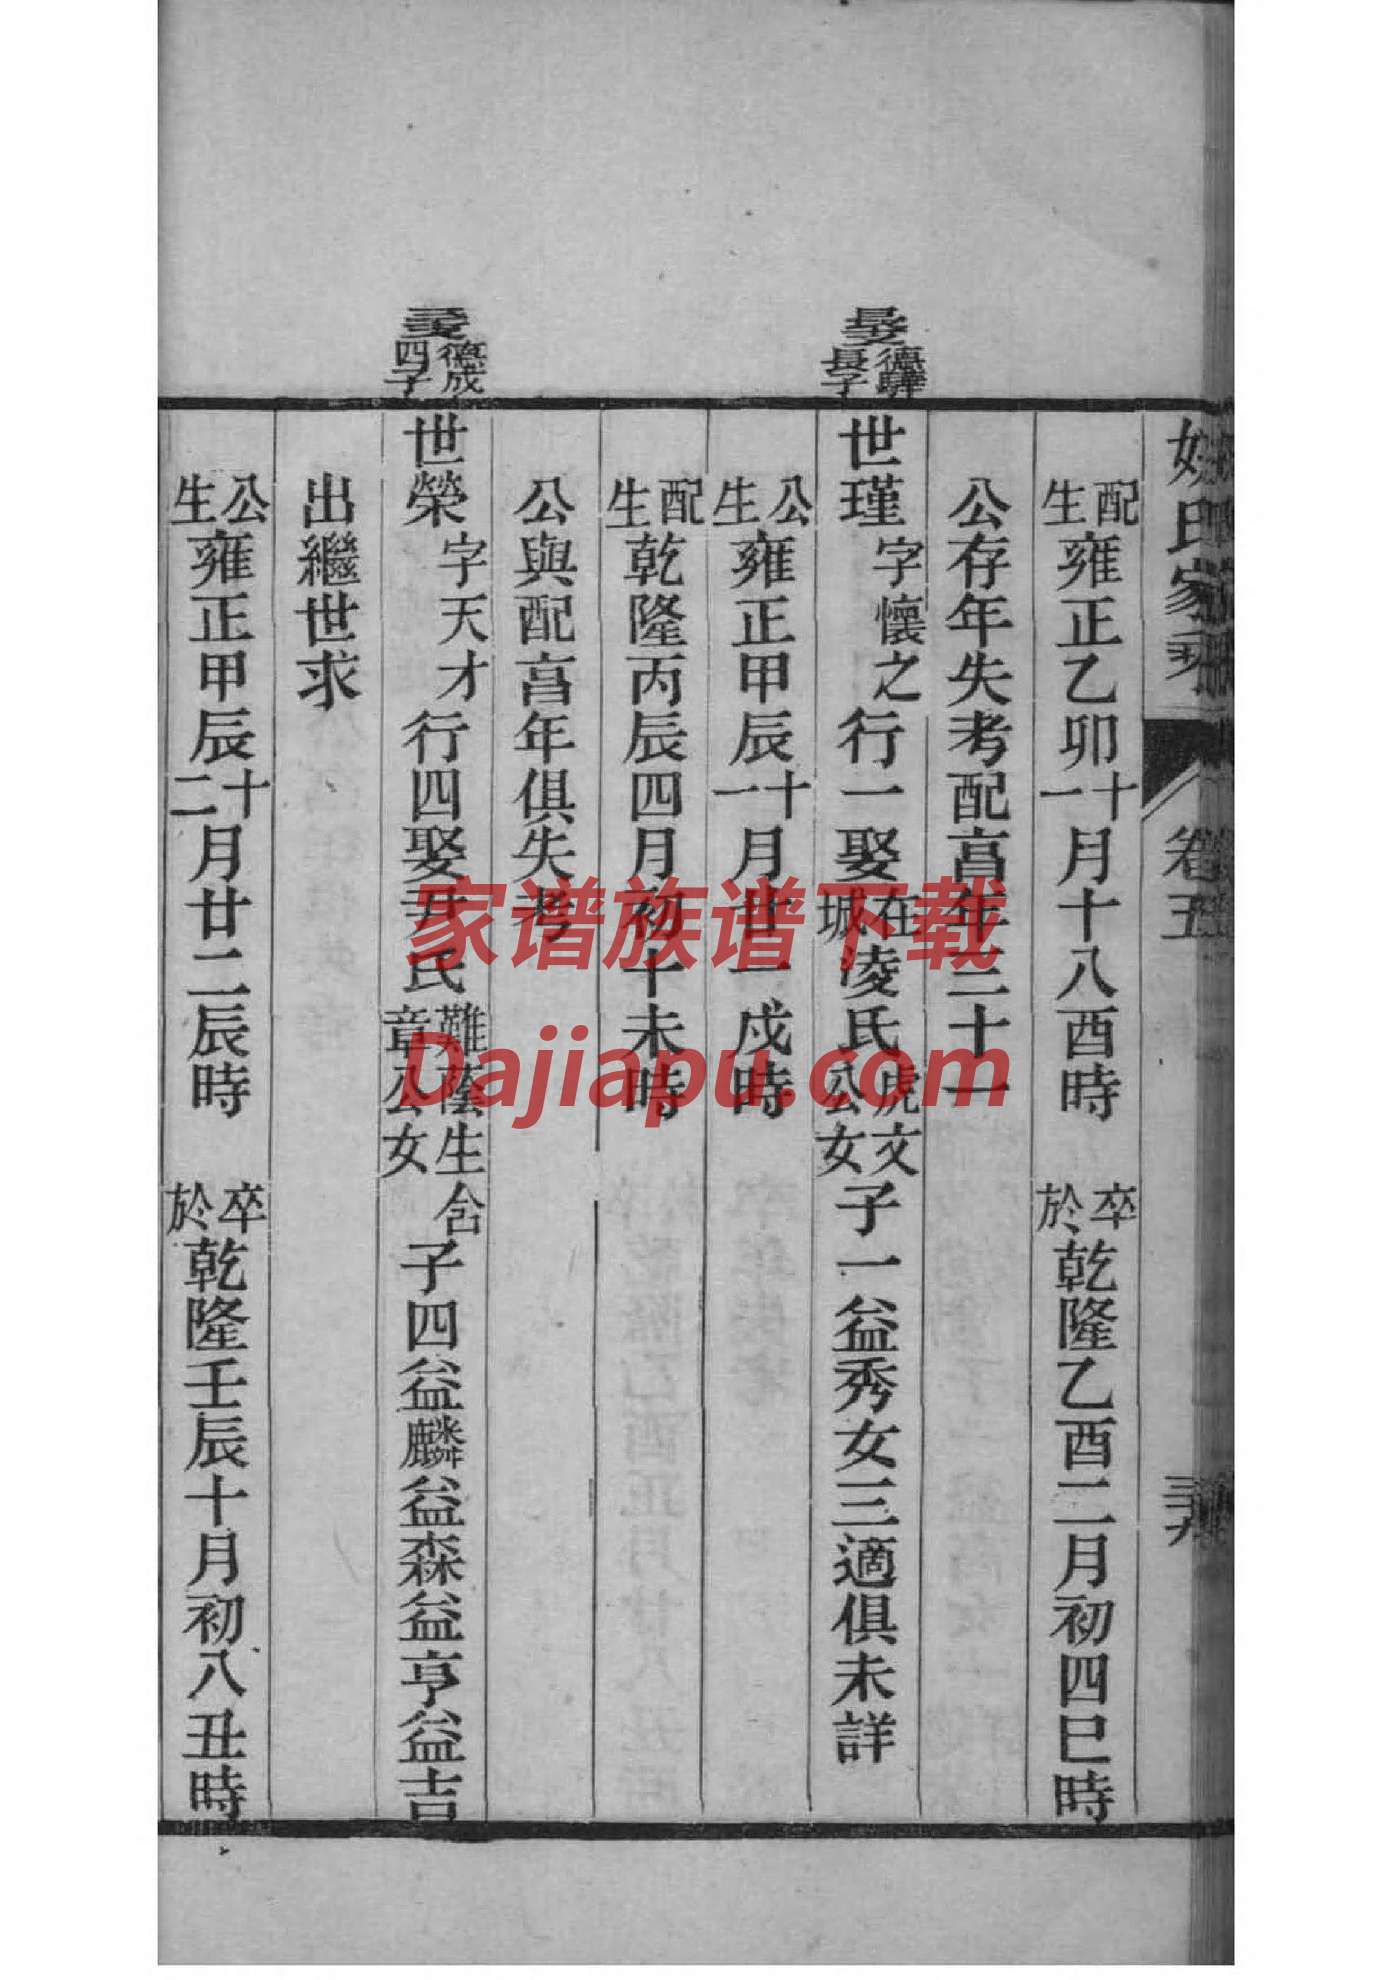 氏家乘 卷五
配生雍正乙卯十一月十八酉時 卒於乾隆乙酉二月初四巳時
公存年失考配亯年三十一
德驊長子
世瑾字懷之行一娶在城凌氏虎文公女子一益秀女三適俱未詳
公生雍正甲辰十一月廿一戍時
配生乾隆丙辰四月初十未時
公與配亯年俱失考
德成四子
世榮字天才行四娶尹氏難蔭生含章公女子四益麟益森益亨益吉
出繼世求
公生雍正甲辰十二月廿二辰時 卒於乾隆壬辰十月初八丑時
家谱族谱下载
Dajiapu.com